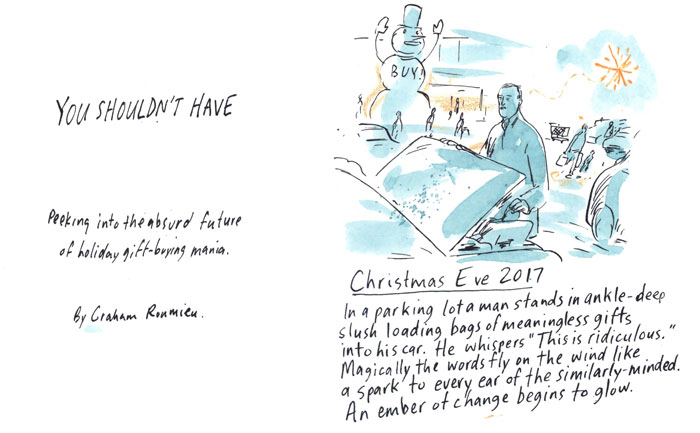 YOU SHOULDN'T HAVE
Peeking into the absurd future
of holiday gift-buying mania.
By Graham Roumieu.
BUY!
Christmas Eve 2017
In a parking lot a man stands in ankle-deep
slush loading bags of meaningless gifts
into his car. He whispers "This is ridiculous."
Magically the words fly on the wind like
a spark to every ear of the similarly-minded.
An ember of change begins to glow.